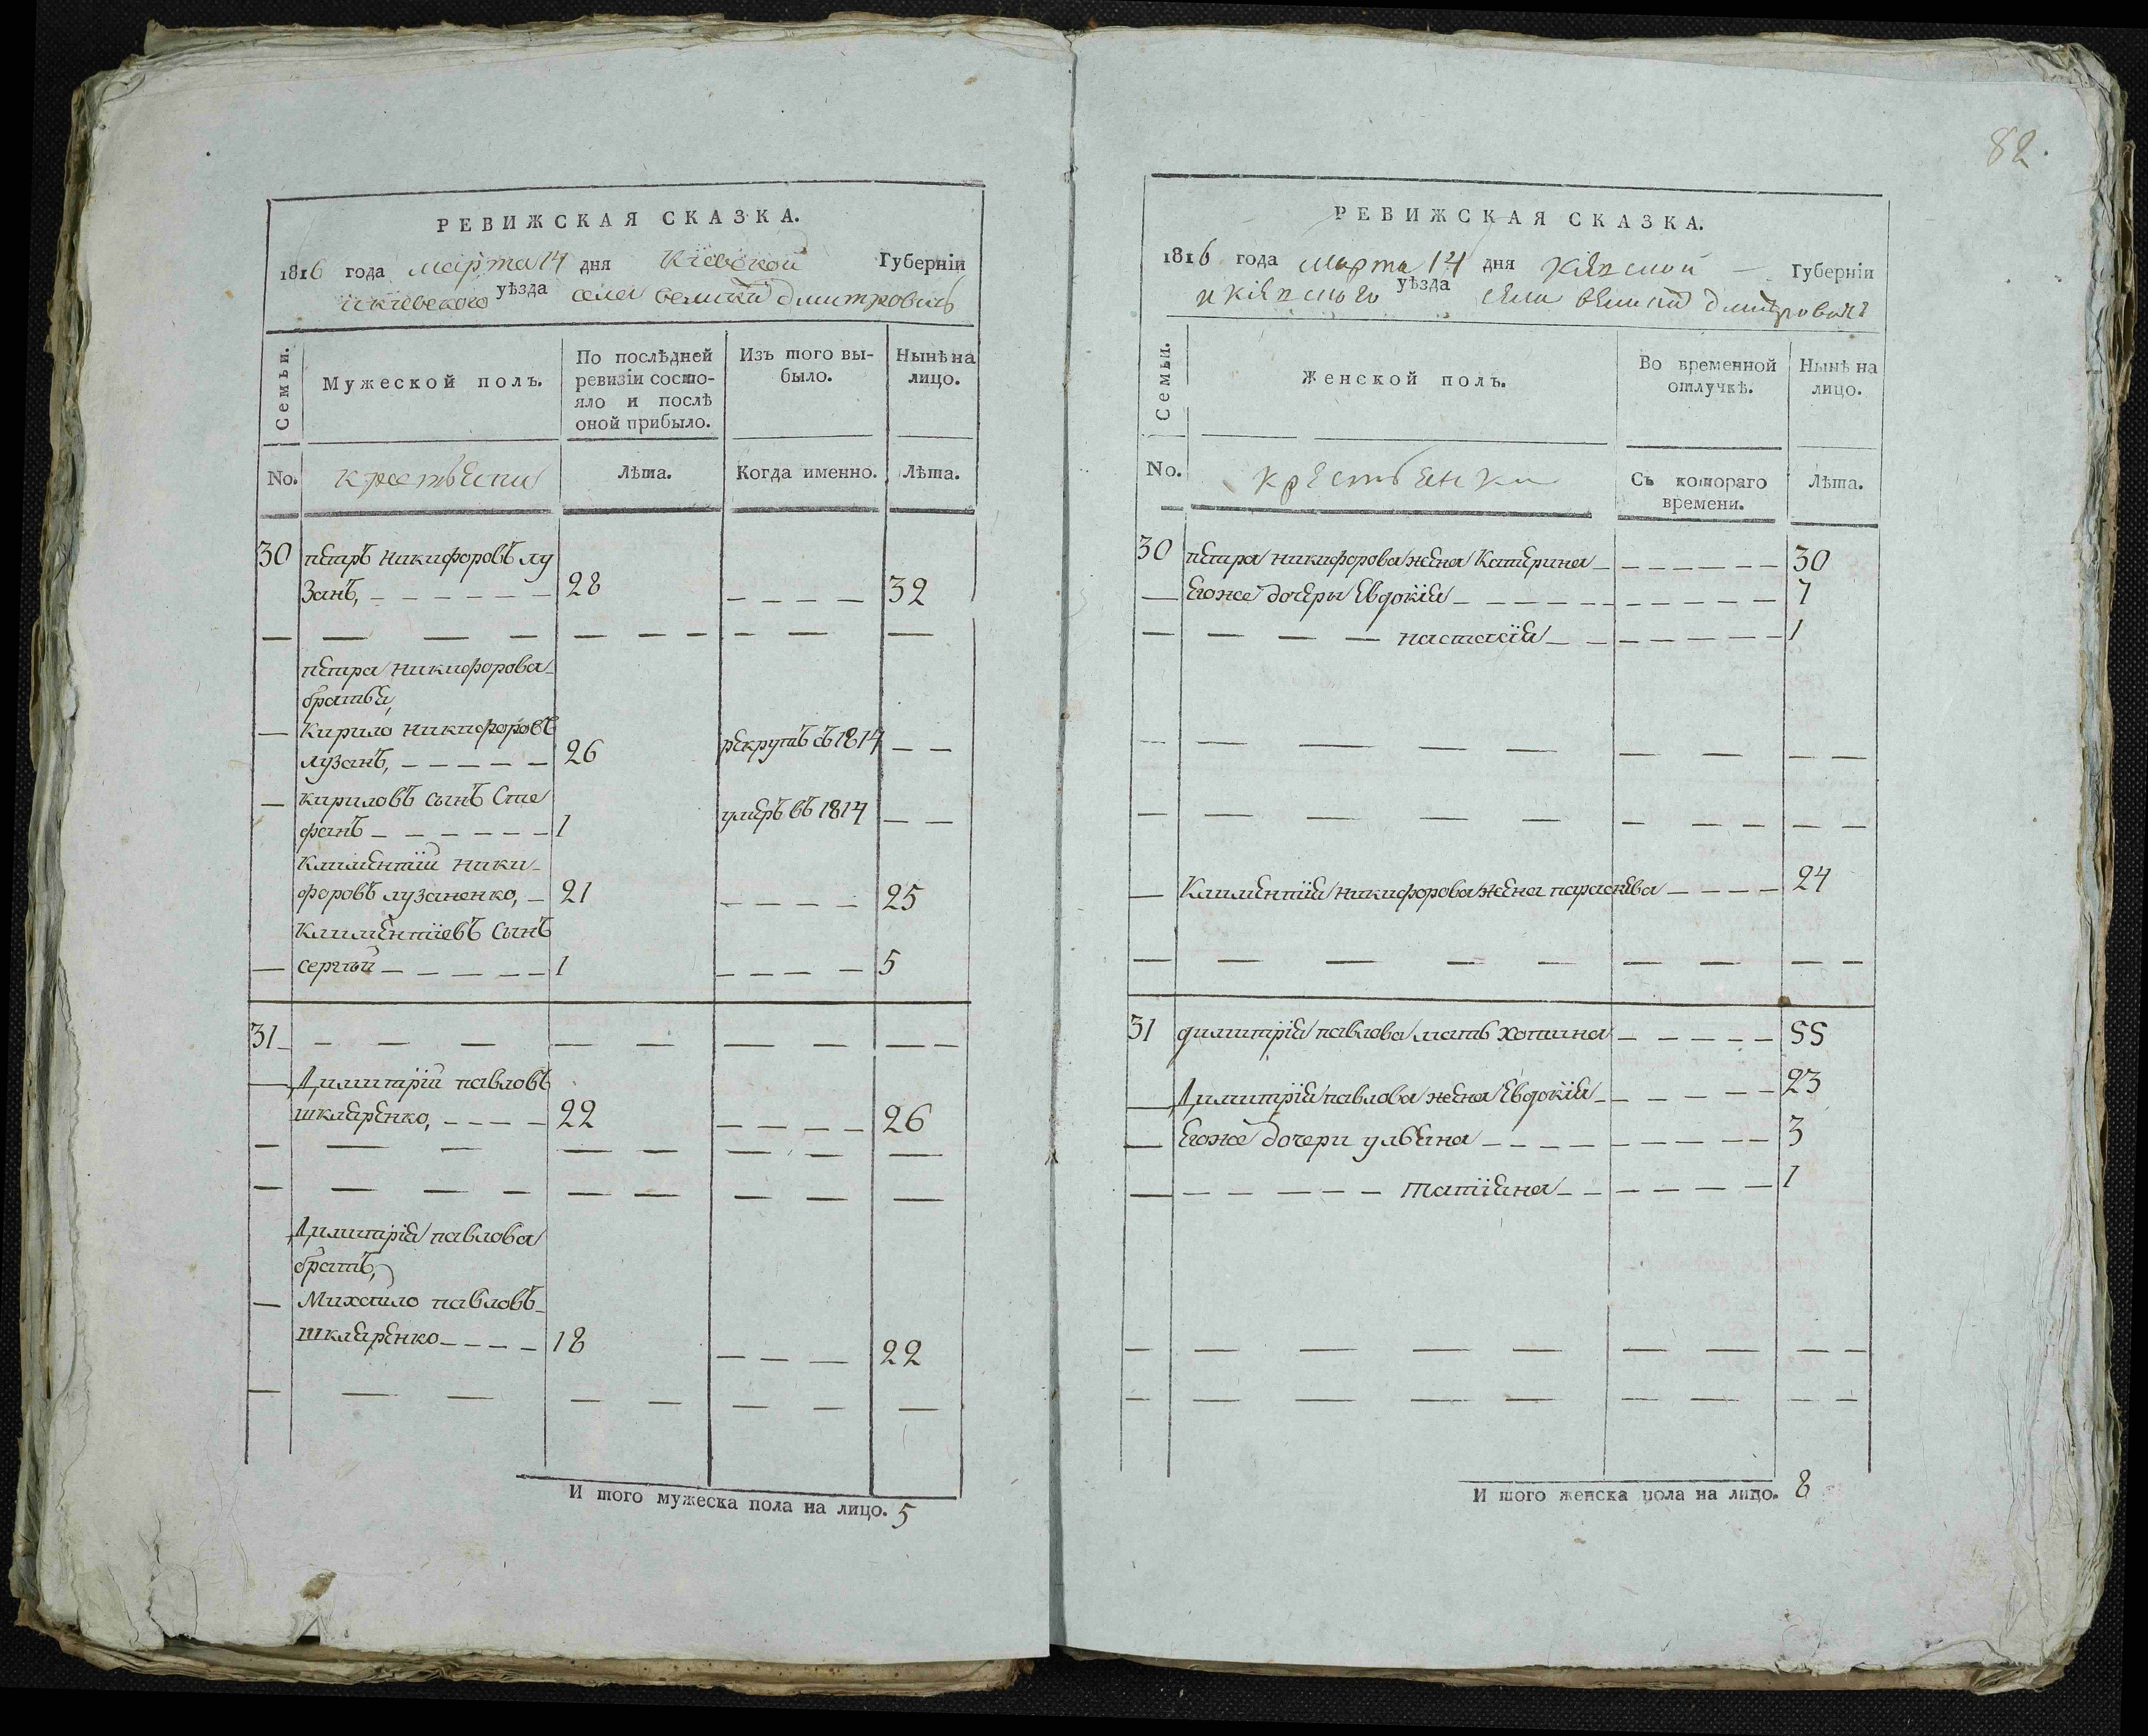 РЕВИЖСКАЯ СКАЗКА.
1816 года марта 14 дня Кіевской Губерніи
и кіевского уѣзда села великой дмитровичъ
Семьи.
Мужеской полъ.
По послѣдней ревизіи состояло и послѣ оной прибыло.
Изъ того выбыло.
Нынѣ на лицо.
No.
крестьяни
Лѣта.
Когда именно.
Лѣта.
30 петръ никифоровъ лу
занъ, 28 32
петра никифорова
братья,
Кирило никифоровъ
лузанъ, 26 рекрутъ въ 1814
кириловъ сынъ Сте
фанъ 1 умеръ въ 1814
Климентий ники-
форовъ лузаненко, 21 25
Климентіевъ сынъ
сергѣй 1 5
31
Димитрий павловъ
шкляренко, 22 26
Димитрія павлова
братъ,
Михайло павловъ
шкляренко 18 22
И того мужеска пола на лицо. 5
82.
РЕВИЖСКАЯ СКАЗКА.
1816 года марта 14 дня Кіевской Губерніи
и кіевского уѣзда села великой дмитровичъ
Семьи.
Женской полъ.
Во временной отлучкѣ.
Нынѣ на лицо.
No.
крестьянки
Съ котораго времени.
Лѣта.
30 петра никифорова жена Катерина 30
Егоже дочеры Евдокія 7
настасія 1
Климентія никифорова жена параскева 24
31 димитрія павлова мать хотина 55
Димитрія павлова жена Евдокія 23
Егоже дочери ульяна 3
татіяна 1
И того женска пола на лицо. 8